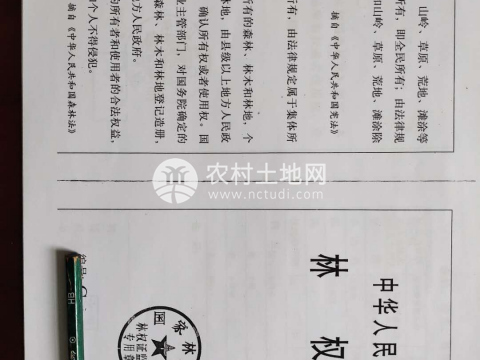 山岭、草原、荒地、滩涂等
所有，即全民所有；由法律规
和山岭、草原、荒地、滩涂除
摘自《中华人民共和国宪法》
所有，由法律规定属于集体所
所有的森林、林木和林地，个
林地，由县级以上地方人民政
确认所有权或者使用权。国
业主管部门，对国务院确定的
森林、林木和林地登记造册，
方人民政府。
的所有者和使用者的合法权益，
个人不得侵犯。
摘自《中华人民共和国森林法》
农村土地网
www.nctudi.com
中华人民
林 权
编号
林权证
专用章